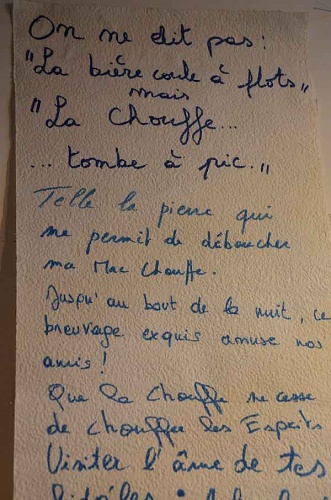 On ne dit pas :
"La bière coule à flots"
mais
"La Chouffe...
... tombe à pic."
Telle la pierre qui
me permit de déboucher
ma Mac Chouffe.
Jusqu'au bout de la nuit, ce
breuvage exquis amuse nos
amis !
Que la Chouffe ne cesse
de chouffer les Esprits
Visiter l'âme de tes